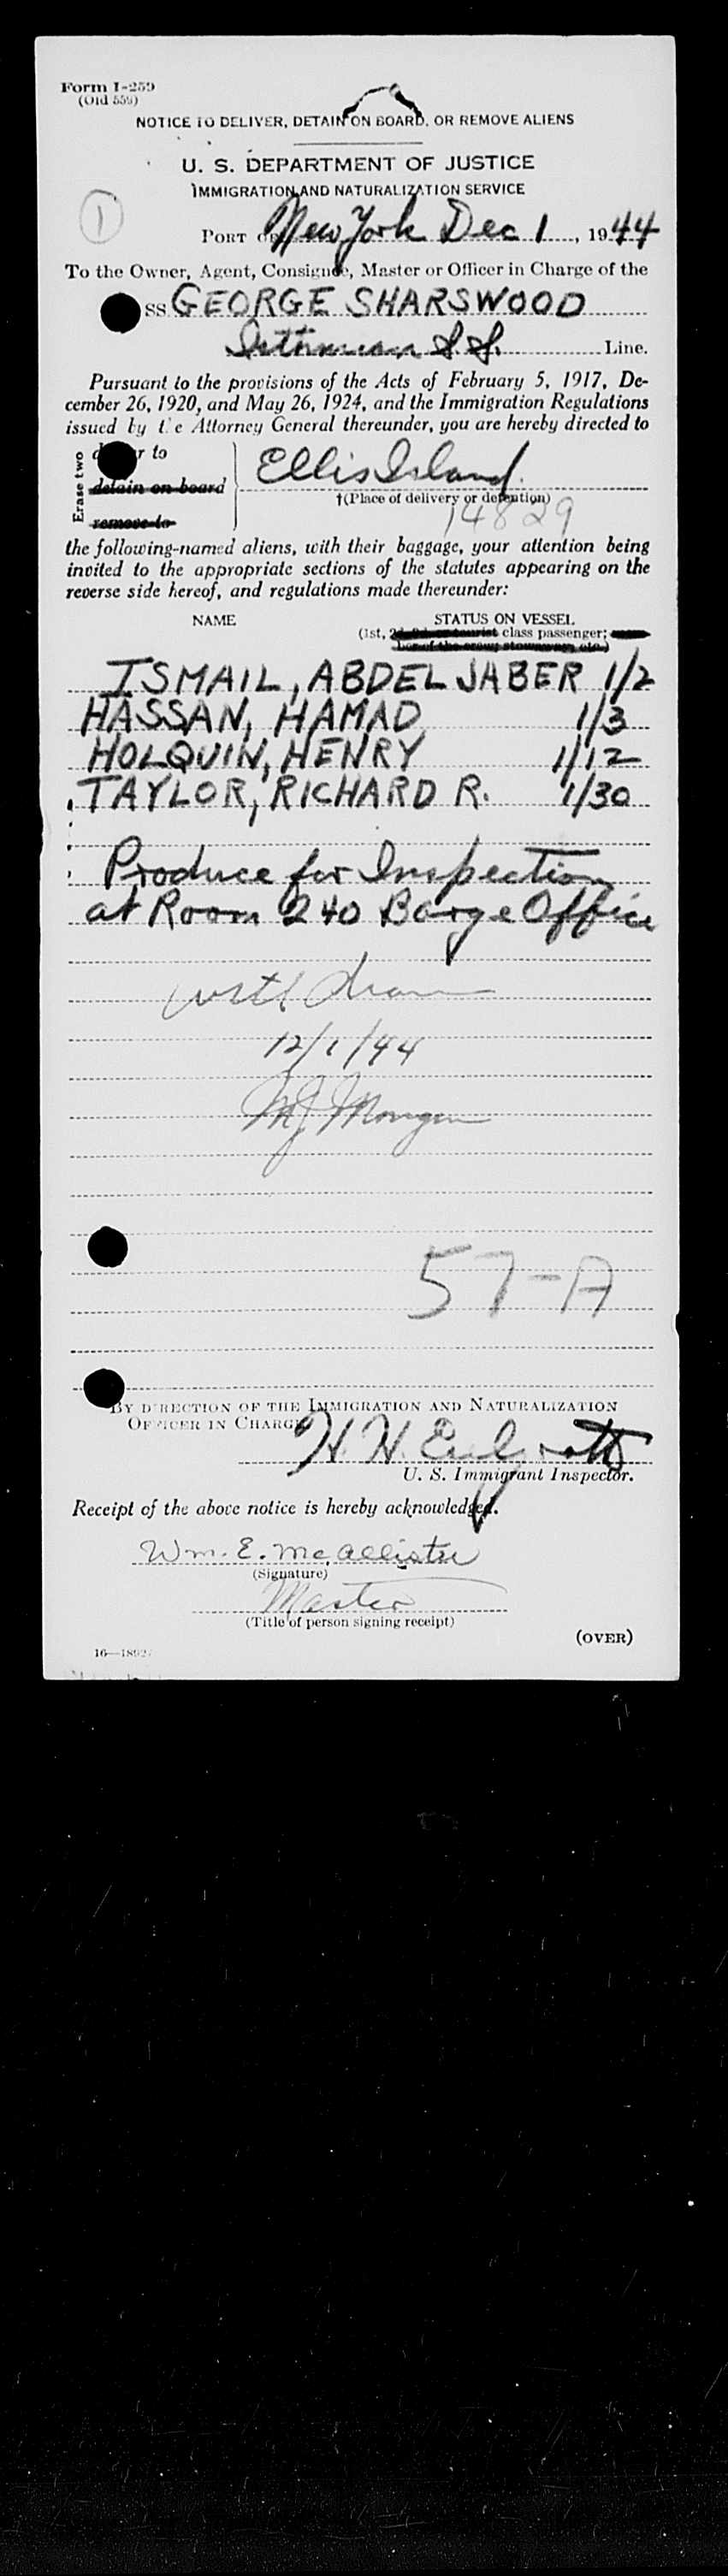 Form I-259
(Old 559)
NOTICE TO DELIVER, DETAIN ON BOARD, OR REMOVE ALIENS
U. S. DEPARTMENT OF JUSTICE
IMMIGRATION AND NATURALIZATION SERVICE
1
PORT OF New York Dec 1, 1944
To the Owner, Agent, Consignee, Master or Officer in Charge of the
SS. GEORGE SHARSWOOD
Isthmian S.S. Line.
Pursuant to the provisions of the Acts of February 5, 1917, De-
cember 26, 1920, and May 26, 1924, and the Immigration Regulations
issued by the Attorney General thereunder, you are hereby directed to
Erase two
to
detain on board
remove to
Ellis Island.
†(Place of delivery or detention)
14829
the following-named aliens, with their baggage, your attention being
invited to the appropriate sections of the statutes appearing on the
reverse side hereof, and regulations made thereunder:
NAME STATUS ON VESSEL
(1st, class passenger;
ISMAIL, ABDEL JABER 1/2
HASSAN, HAMAD 1/3
HOLQUIN, HENRY 1/12
TAYLOR, RICHARD R. 1/30
Produce for Inspection
at Room 240 Barge Office
12/1/44
MJ Morgan
57-A
BY DIRECTION OF THE IMMIGRATION AND NATURALIZATION
OFFICER IN CHARGE
H. H.
U. S. Immigrant Inspector.
Receipt of the above notice is hereby acknowledged.
Wm. E. McAllister
(Signature)
Master
(Title of person signing receipt)
(OVER)